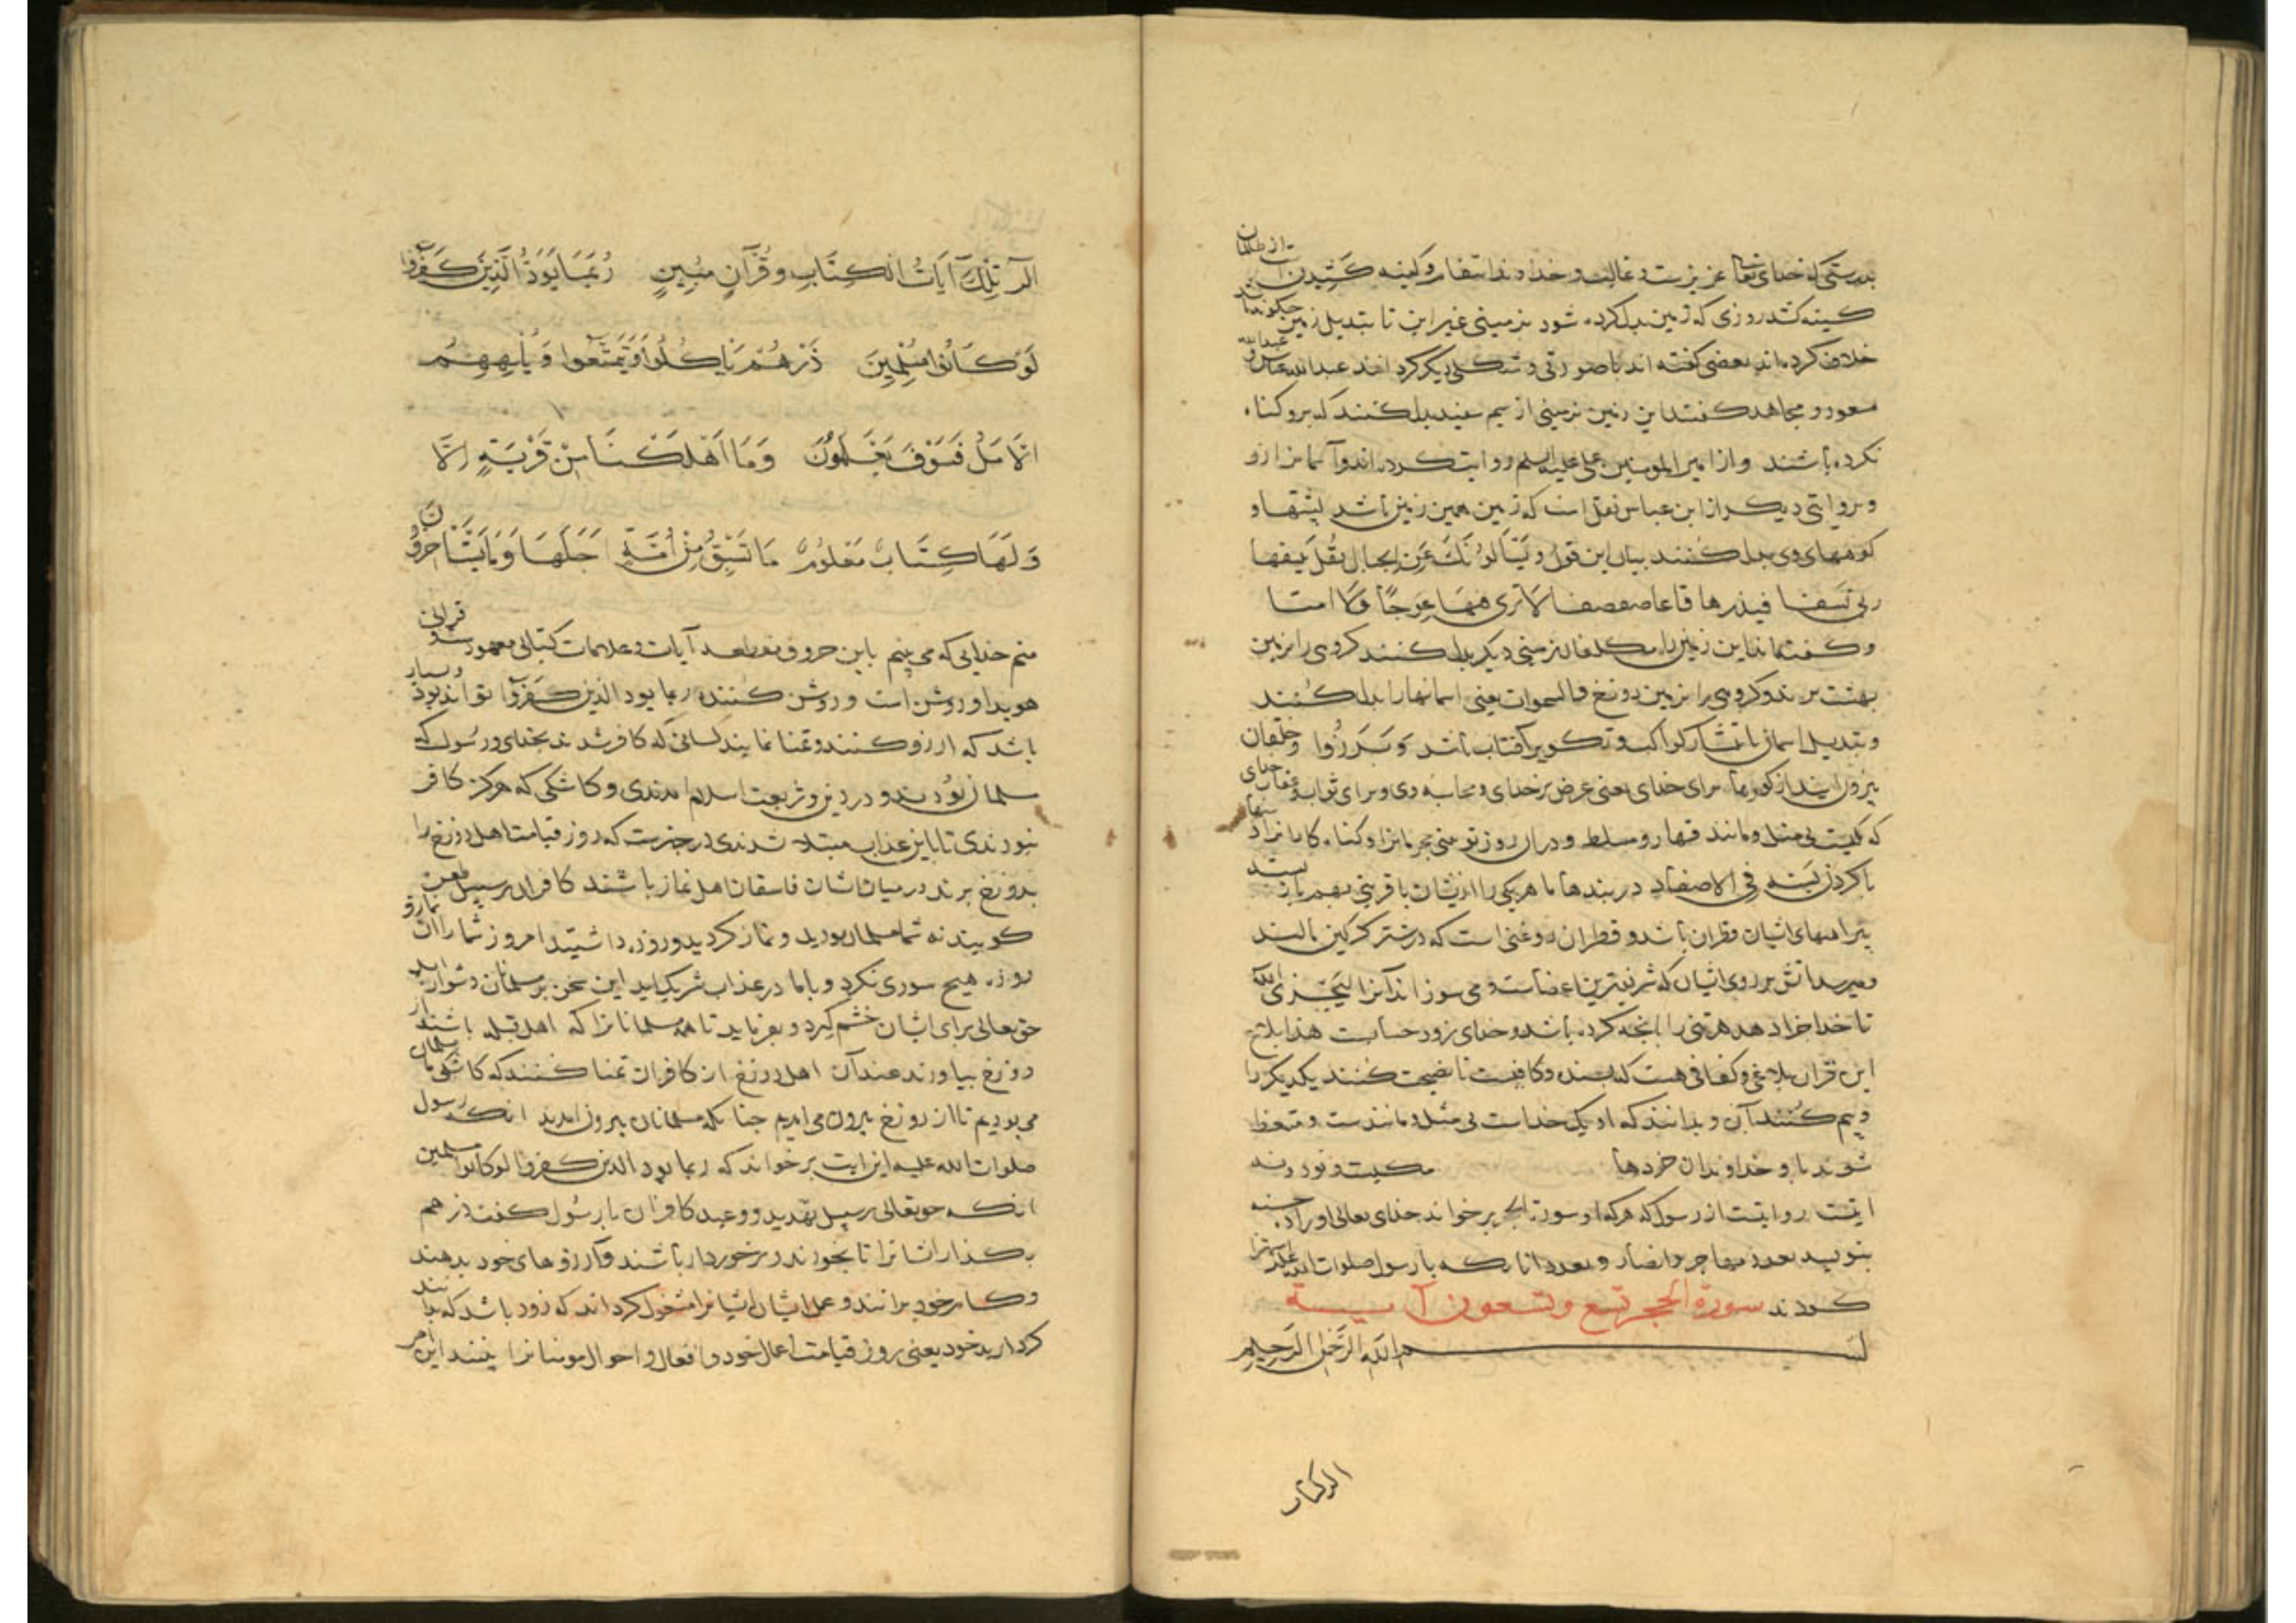 بدرستی که خدای تعالی عزیزست و غالبست و خداوند انتقام و کینه کشیدن است از ظالمان
کینه کشد روزی که زمین بدل کرده شود بزمینی غیر این تا تبدیل زمین چگونه باشد
خلاف کرده اند بعضی گفته اند با صورتی و شکلی دیگر کردانند عبدالله عباس و عبدالله
مسعود و مجاهد گفتند این زمین بزمینی از سیم سفید بدل کنند که برو گناه
نکرده باشند و از امیر المومنین علی علیه السلم روایت کرده اند و آسمانرا از زر
و بروایتی دیگر از ابن عباس نقل است که زمین همین زمین باشد پشتها و
کوههای وی بدل کنند بیان این قول ویسالونک عن الجبال فقل ینسفها
ربی نسفا فیذرها قاعا صفصفا لا تری فیها عوجا ولا امتا
و گفته اند این زمین را بدل کنند گروهی را بزمین
بهشت برند و گروهی را بزمین دوزخ والسموات یعنی اسمانها را بدل کنند
و تبدیل اسمان بانتشار کواکب و تکویر آفتاب باشد وَبَرَزُوا و خلقان
بیرون ایند از گورها برای خدای یعنی عرض بر خدای و محاسبه وی و برای ثواب و عقاب خدای
که یکیست بی مثل و مانند قهار و مسلط و دران روز تو بینی مجرمانرا و گناه کارانرا دستها
با گردن بسته فی الاصفاد در بندها با هریکی را ازیشان با قرینی بهم باز بسته
پیراهنهای ایشان قطران باشد و قطران روغنی است که در شتر گرگین مالند
و میرسد اتش بر روی ایشان که شریفترین اعضاست و می سوزاند آنرا لیجزی الله
تا خدا جزا دهد هر تنی را آنچه کرده باشد و خدای زود حسابست هذا بلاغ
این قران بلاغی و کفافی هست که بسنده و کافیست تا نصیحت کنند یکدیگر را
و بیم کنند بآن و بدانند که او یک خداست بی مثل و مانندست و متعظ
شوند باو خداوندان خردها مکیست و نود و نه
ایتست روایتست از رسول که هر که او سورة الحجر برخواند خدای تعالی اورا ده حسنه
بنویسد بعدد مهاجر و انصار و بعدد انانکه با رسول صلوات الله علیه استهزا
کردند سورة الحجر تسع وتسعون آیة
بسم الله الرحمن الرحیم
الر تلک
الٓر تِلْکَ آیَاتُ الکِتَابِ وقُرْآنٍ مُبِینٍ رُبَمَا یَوَدُّ الَّذِینَ کَفَرُوا
لَوْ کَانُوا مُسْلِمِینَ ذَرْهُمْ یَاکُلُوا وَیَتَمَتَّعُوا وَیُلْهِهِمُ
الاَمَلُ فَسَوْفَ یَعْلَمُونَ وَمَا اَهْلَکْنَا مِنْ قَرْیَةٍ اِلَّا
وَلَهَا کِتَابٌ مَعْلُومٌ مَا تَسْبِقُ مِنْ اُمَّةٍ اَجَلَهَا وَمَا یَسْتَاخِرُونَ
منم خدایی که می بینم باین حروف مقطعه آیات و علامات کتابی معهودست و قرانی
هویدا و روشن است و روشن کننده ربما یود الذین کفروا تواند بود و بسیار
باشد که ارزو کنند و تمنا نمایند کسانی که کافر شدند بخدای و رسول که
مسلمان بودندی و در دین و شریعت اسلام امدندی و کاشکی که هرگز کافر
نبودندی تا باین عذاب مبتلا شدندی در خبرست که روز قیامت اهل دوزخ را
بدوزخ برند در میان اشان فاسقان اهل نماز باشند کافران بر سبیل طعن
گویند نه شما مسلمان بودید و نماز کردید و روزه داشتید امروز شما را ان نماز و
روزه هیچ سودی نکرد و باما در عذاب شریک اید این سخن بر مسلمانان دشوار اید
حق تعالی برای ایشان خشم گیرد و بفرماید تا همه مسلمانانرا که اهل قبله باشند از
دوزخ بیاورند عند آن اهل دوزخ از کافران تمنا کنند که کاشکی ما مسلمان
می بودیم تا از دوزخ بیرون می امدیم چنانکه مسلمانان بیرون امدند انکه رسول
صلوات الله علیه این ایت برخواند که ربما یود الذین کفروا لو کانوا مسلمین
انکه حق تعالی بر سبیل تهدید و وعید کافران با رسول گفت ذرهم
بگذار اشانرا تا بخورند و برخوردار باشند و آرزوهای خود بدهند
و کام خود برانند و عمل ایشان ایشانرا مشغول کرداند که زود باشد که بدانند
کردار بد خود یعنی روز قیامت اعمال خود و افعال و احوال مومنانرا بینند این امر